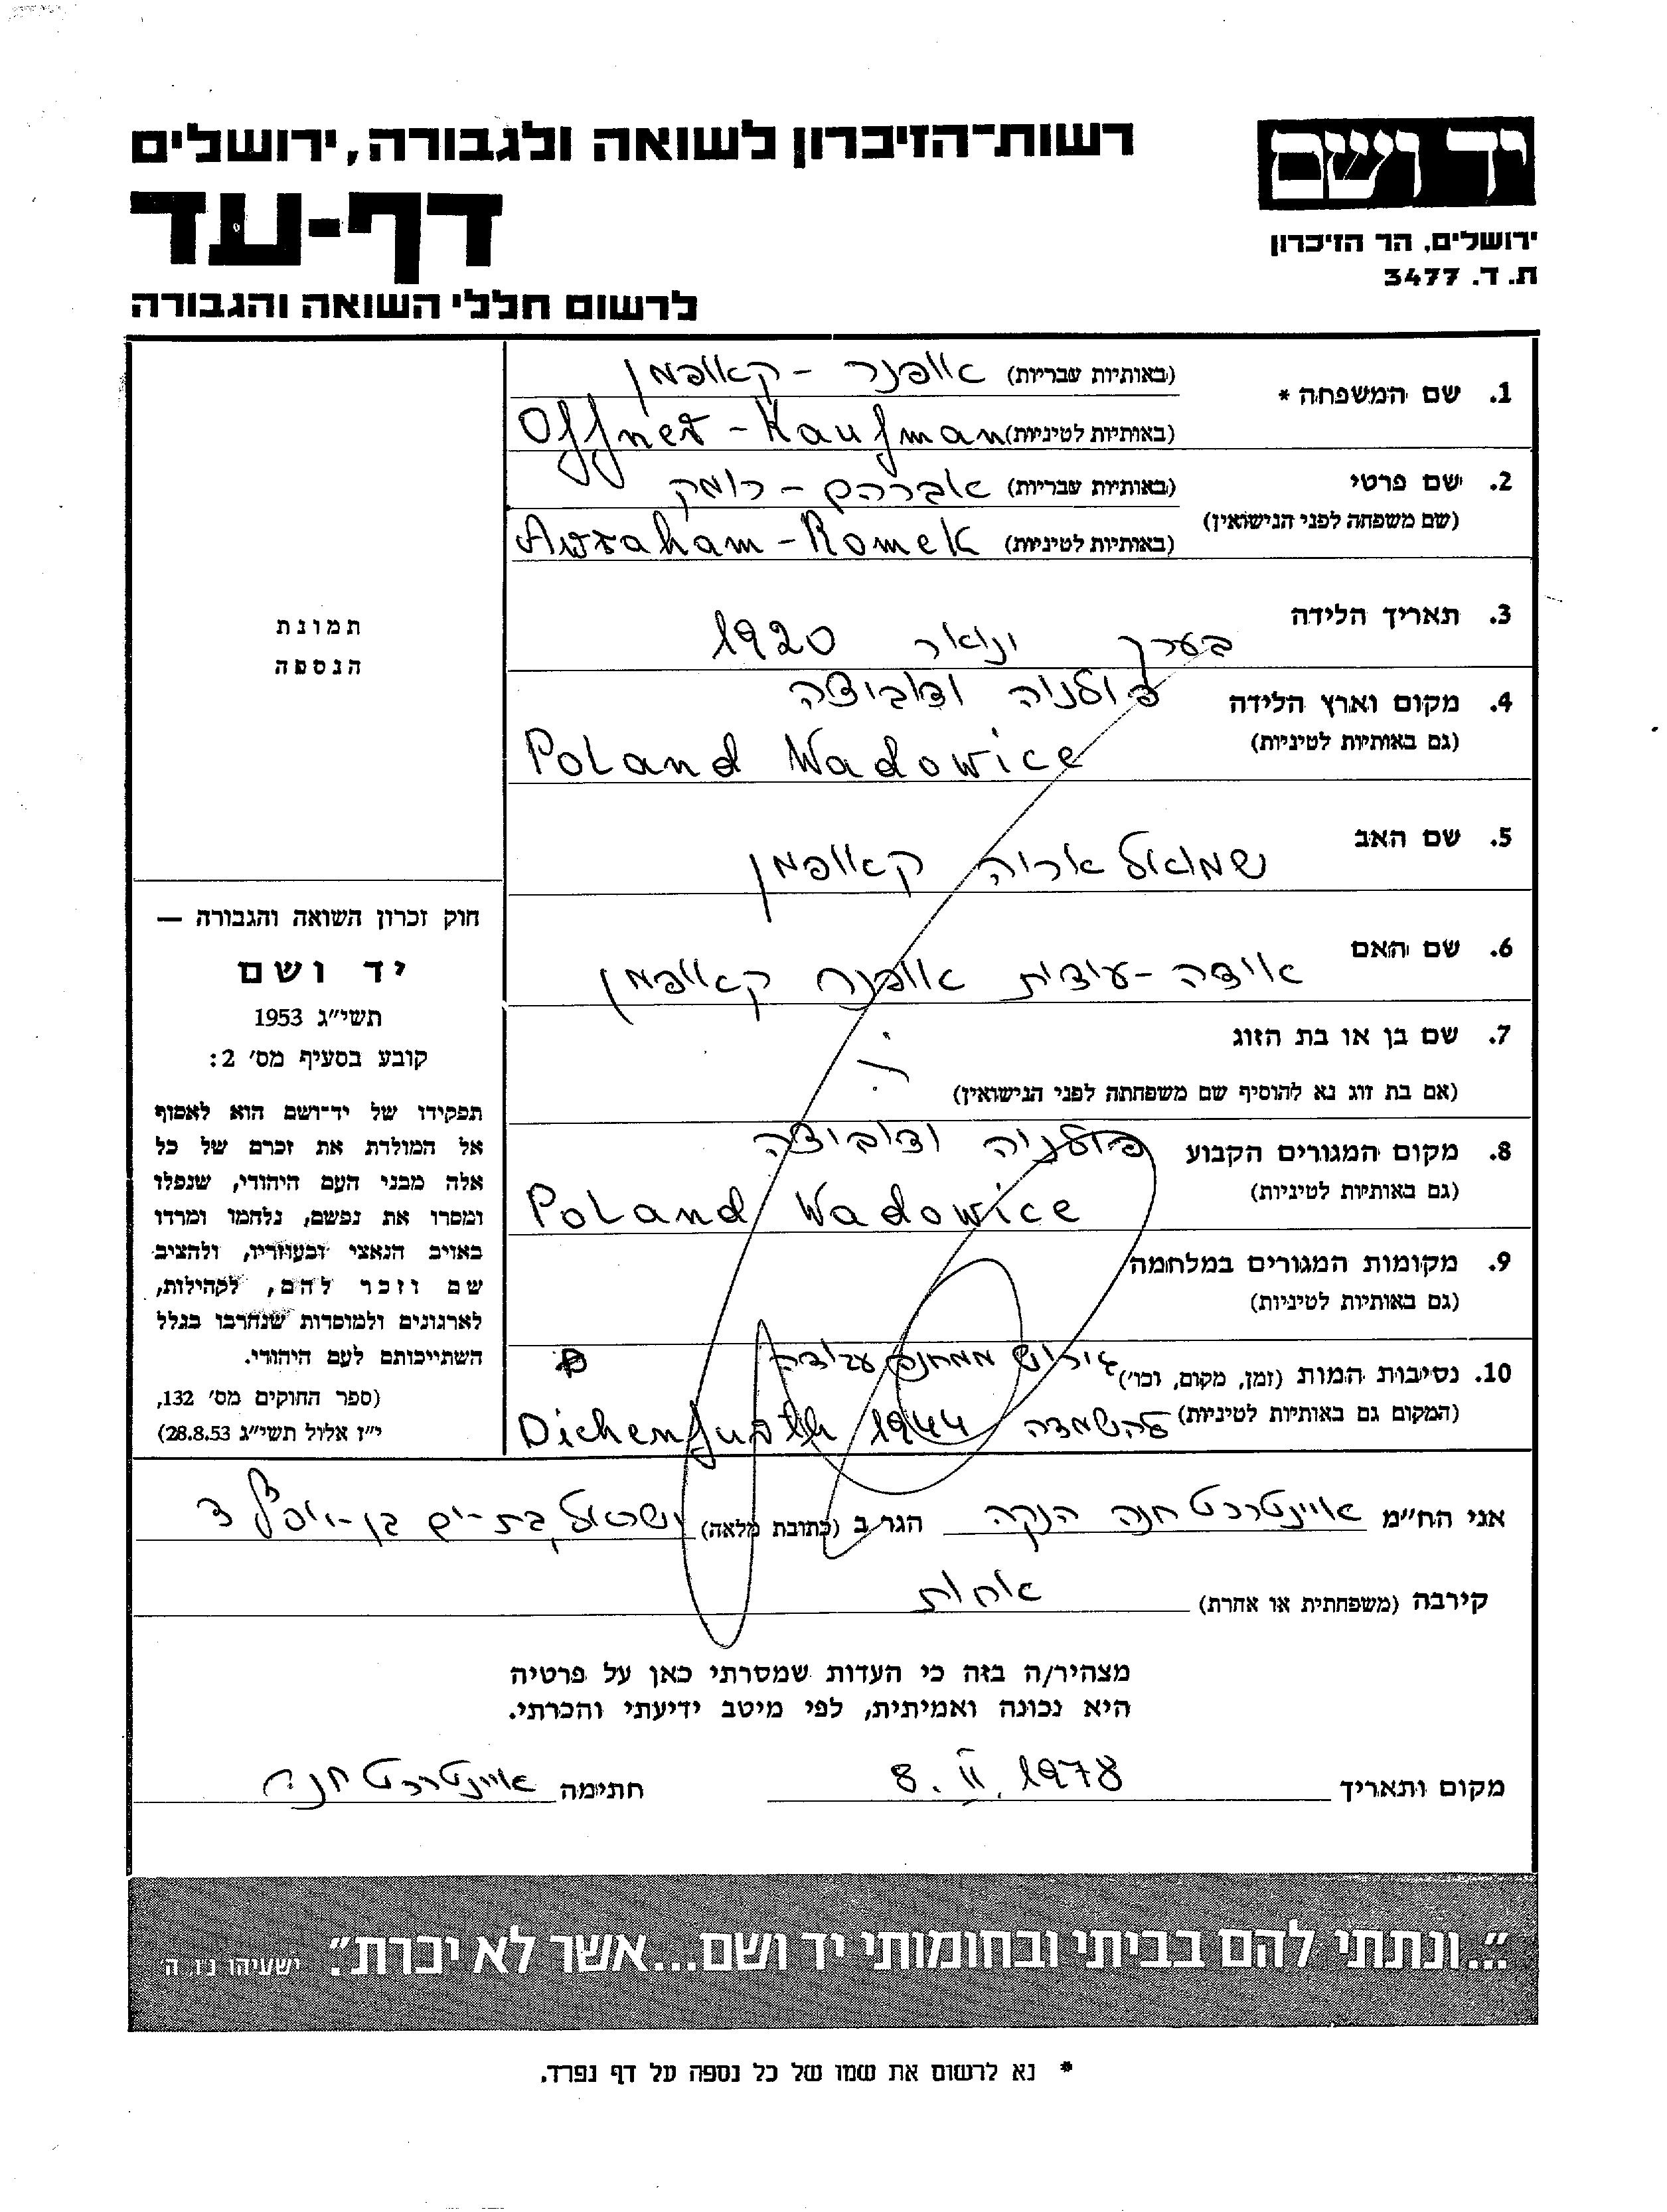 רשות-הזיכרון לשואה ולגבורה, ירושלים
דף-עד
לרשום חללי השואה והגבורה
יד ושם
ירושלים, הר הזיכרון
ת. ד. 3477
1. שם המשפחה * (באותיות עבריות) אופנר - קאופמן
(באותיות לטיניות) Offner - Kaufman
2. שם פרטי (באותיות עבריות) אברהם - רומק
(שם משפחה לפני הנישואין)
(באותיות לטיניות) Awraham - Romek
3. תאריך הלידה
בערך ינואר 1920
4. מקום וארץ הלידה פולניה ודוביצה
(גם באותיות לטיניות)
Poland Wadowice
5. שם האב
שמואל אריה קאופמן
6. שם האם
אידה - יודית אופנר קאופמן
7. שם בן או בת הזוג
(אם בת זוג נא להוסיף שם משפחתה לפני הנישואין)
8. מקום המגורים הקבוע פולניה ודוביצה
(גם באותיות לטיניות) Poland Wadowice
9. מקומות המגורים במלחמה
(גם באותיות לטיניות)
10. נסיבות המות (זמן, מקום, וכו') גירוש ממחנה עבודה
(המקום גם באותיות לטיניות) להשמדה 1944 Dichenfurth
תמונת
הנספה
חוק זכרון השואה והגבורה —
יד ושם
תשי״ג 1953
קובע בסעיף מס׳ 2:
תפקידו של יד־ושם הוא לאסוף
אל המולדת את זכרם של כל
אלה מבני העם היהודי, שנפלו
ומסרו את נפשם, נלחמו ומרדו
באויב הנאצי ובעוזריו, ולהציב
שם וזכר להם, לקהילות,
לארגונים ולמוסדות שנחרבו בגלל
השתייכותם לעם היהודי.
(ספר החוקים מס׳ 132,
י״ז אלול תשי״ג 28.8.53)
אני הח״מ איינטרכט חנה הנקה הגר ב (כתובת מלאה) ישראל, בת-ים בן-יופל 3
קירבה (משפחתית או אחרת) אחות
מצהיר/ה בזה כי העדות שמסרתי כאן על פרטיה
היא נכונה ואמיתית, לפי מיטב ידיעתי והכרתי.
מקום ותאריך 8. II. 1978 חתימה איינטרכט חנה
״...ונתתי להם בביתי ובחומותי יד ושם...אשר לא יכרת״. ישעיהו נ״ו, ה׳
* נא לרשום את שמו של כל נספה על דף נפרד.